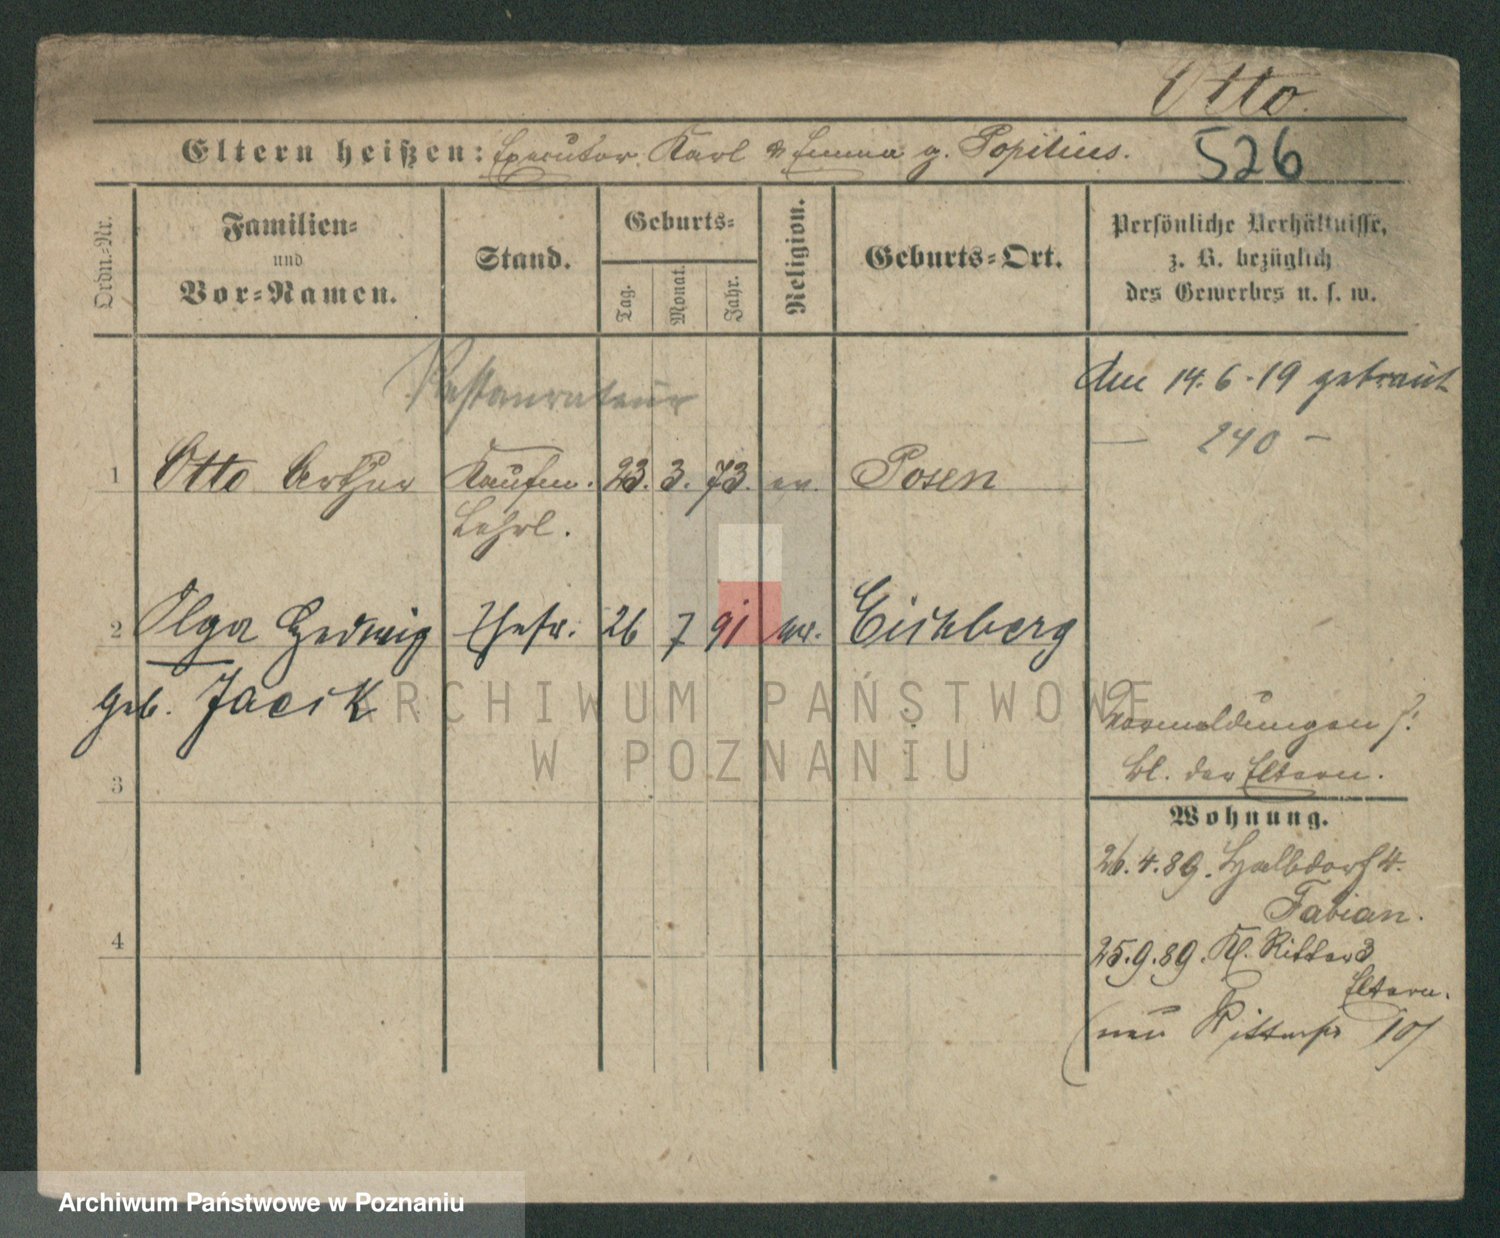 Otto.
526
Eltern heißen: Executor Karl & Emma g. Popitius.
Ordn.-Nr.
Familien-
und
Vor-Namen.
Stand.
Geburts-
Tag.
Monat.
Jahr.
Religion.
Geburts-Ort.
Persönliche Verhältnisse,
z. B. bezüglich
des Gewerbes u. s. w.
Restaurateur
Am 14.6.19 getraut
— 240 —
1 Otto Arthur Kaufm. 23. 3. 73. ev. Posen
Lehrl.
2 Olga Hedwig Ehefr. 26 7 91 Eichberg
geb. Jacik
3
4
Vormeldungen s:
bl. der Eltern.
Wohnung.
26.4.89. Halbdorf 4.
Fabian.
25.9.89. Kl. Ritter 3
Eltern.
neu Ritterstr 10
ARCHIWUM PAŃSTWOWE
W POZNANIU
Archiwum Państwowe w Poznaniu